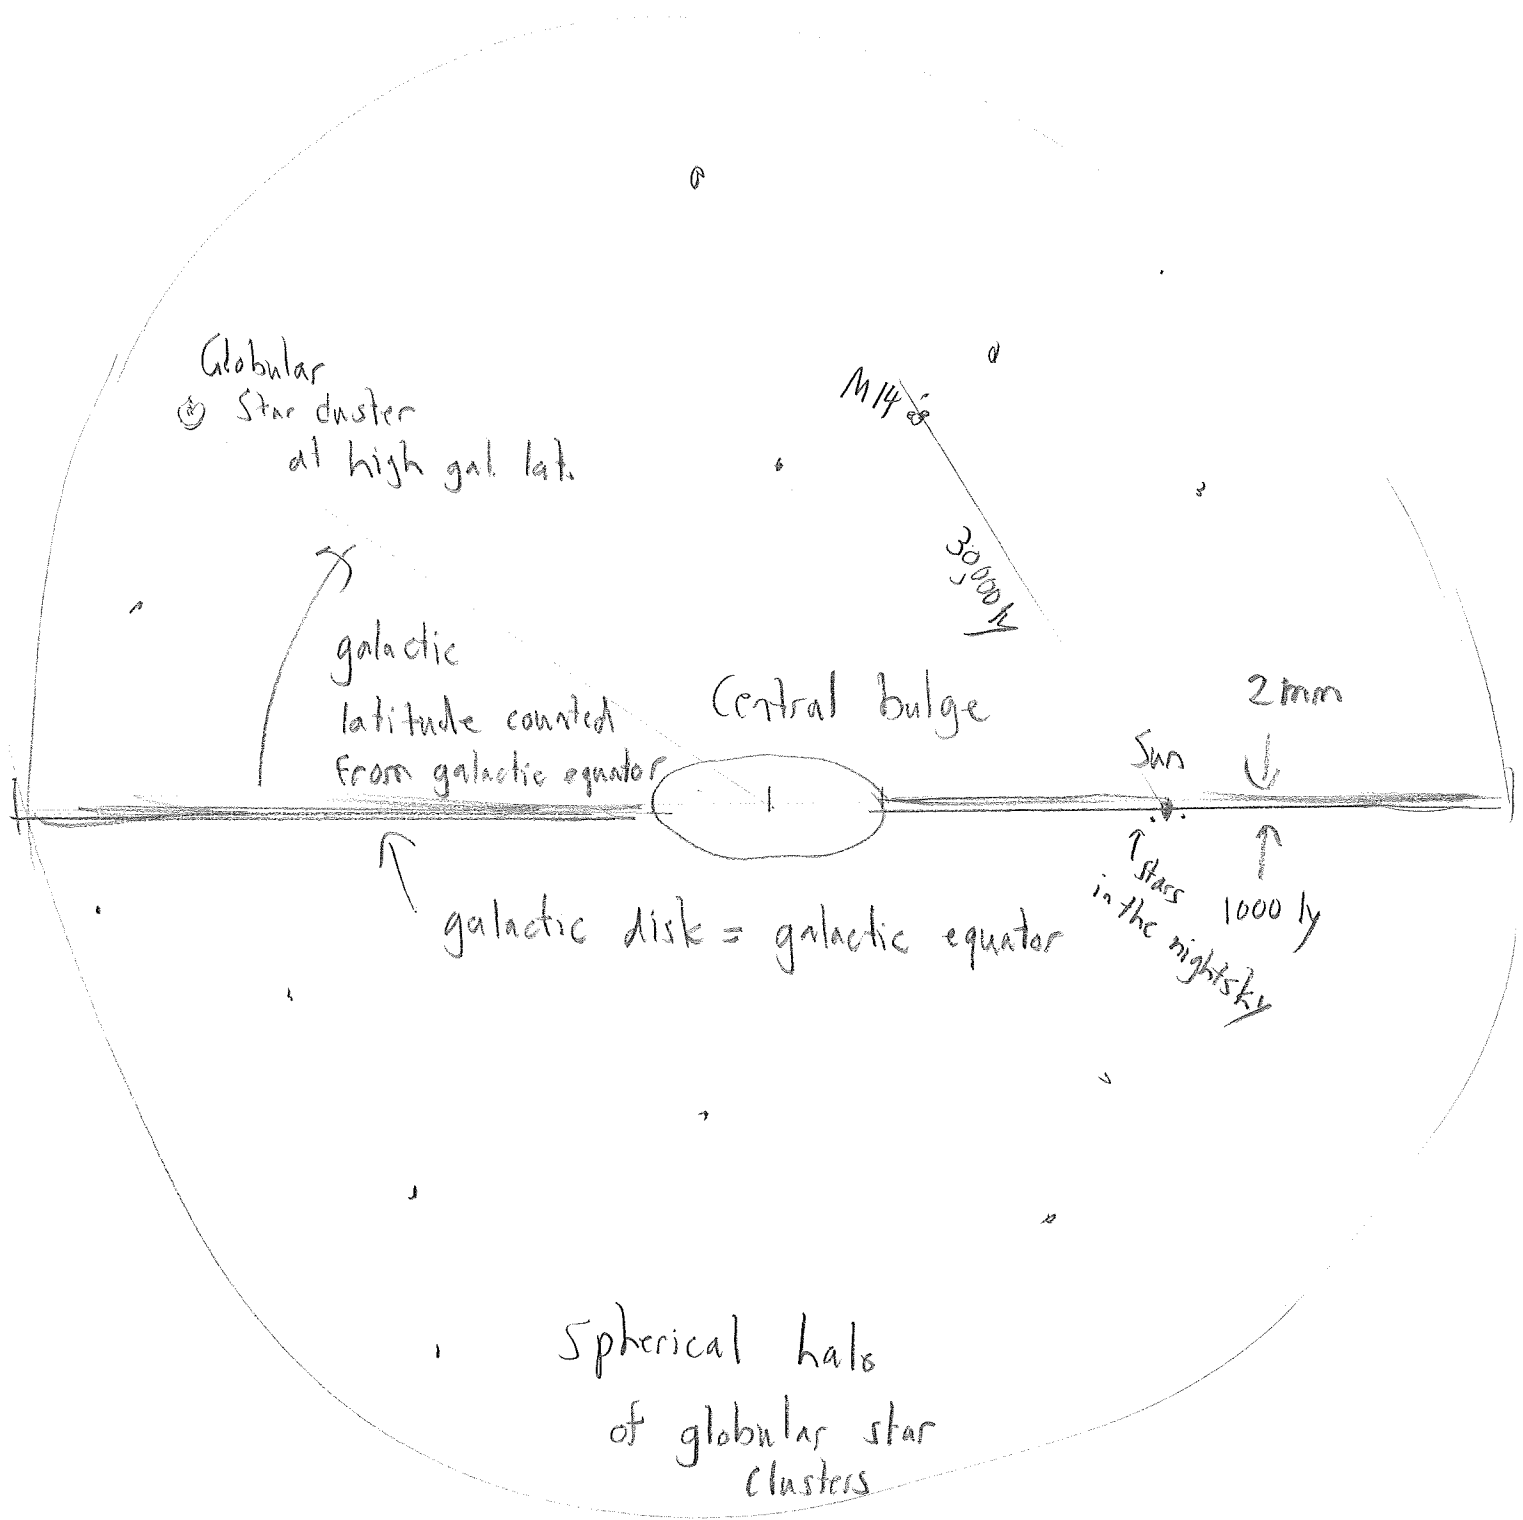 Globular
Star cluster
at high gal. lat.
M14
30,000 ly
galactic
latitude counted
from galactic equator
Central bulge
Sun
2mm
galactic disk = galactic equator
stars
in the nightsky
1000 ly
Spherical halo
of globular star
clusters